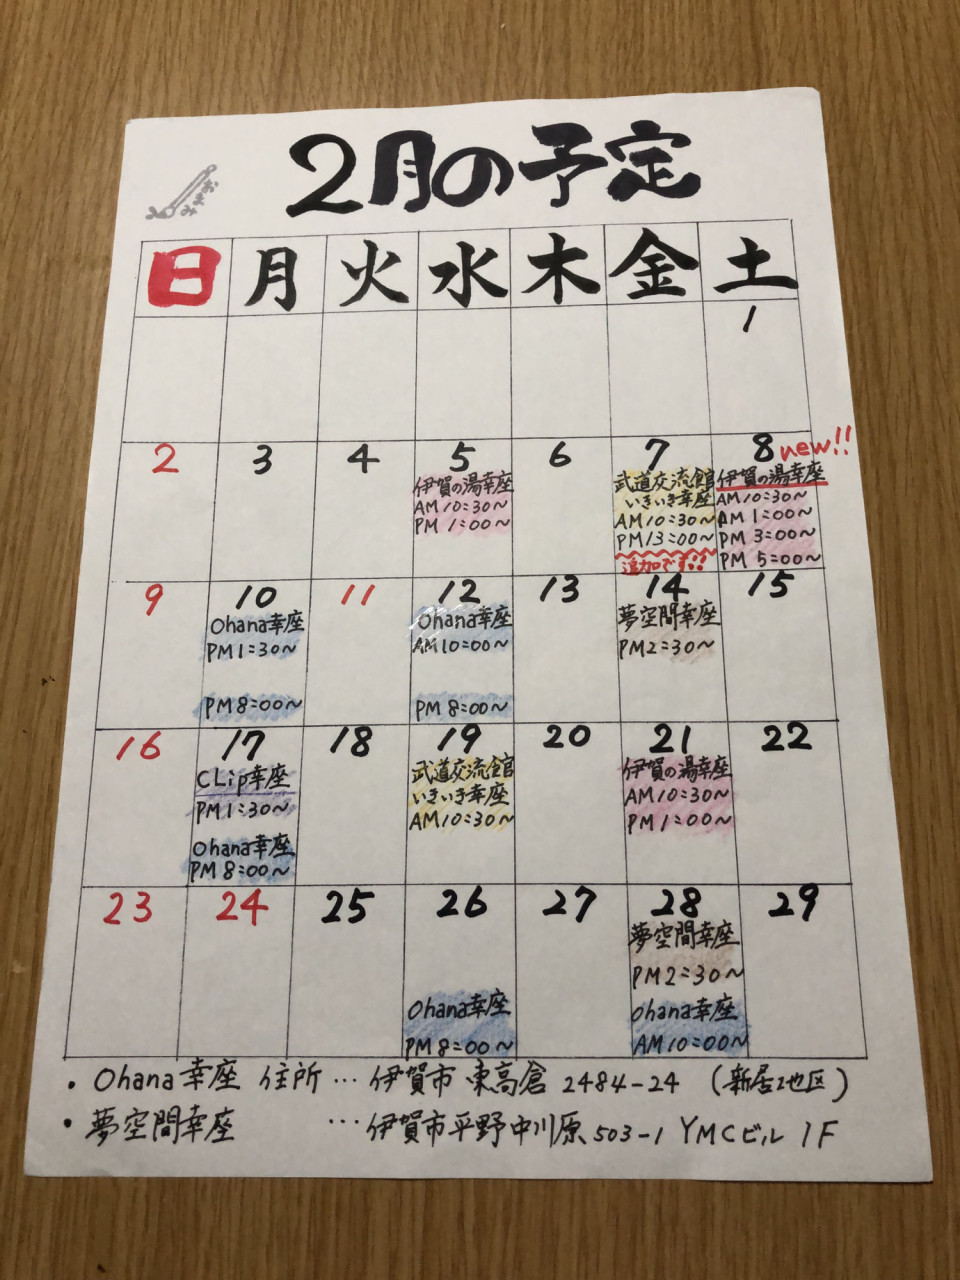 2月の予定
おまみ
日 月 火 水 木 金 土
1
2 3 4 5 6 7 8 new!!
伊賀の湯幸座
AM10:30~
PM 1:00~
武道交流館
いきいき幸座
AM10:30~
PM13:00~
追加です!!
伊賀の湯幸座
AM10:30~
AM 1:00~
PM 3:00~
PM 5:00~
9 10 11 12 13 14 15
Ohana幸座
PM1:30~
PM8:00~
Ohana幸座
AM10:00~
PM 8:00~
夢空間幸座
PM2:30~
16 17 18 19 20 21 22
CLip幸座
PM1:30~
Ohana幸座
PM8:00~
武道交流館
いきいき幸座
AM10:30~
伊賀の湯幸座
AM10:30~
PM1:00~
23 24 25 26 27 28 29
Ohana幸座
PM8:00~
夢空間幸座
PM2:30~
ohana幸座
AM10:00~
・Ohana幸座 住所…伊賀市東高倉2484-24(新居地区)
・夢空間幸座 …伊賀市平野中川原503-1 YMCビル 1F